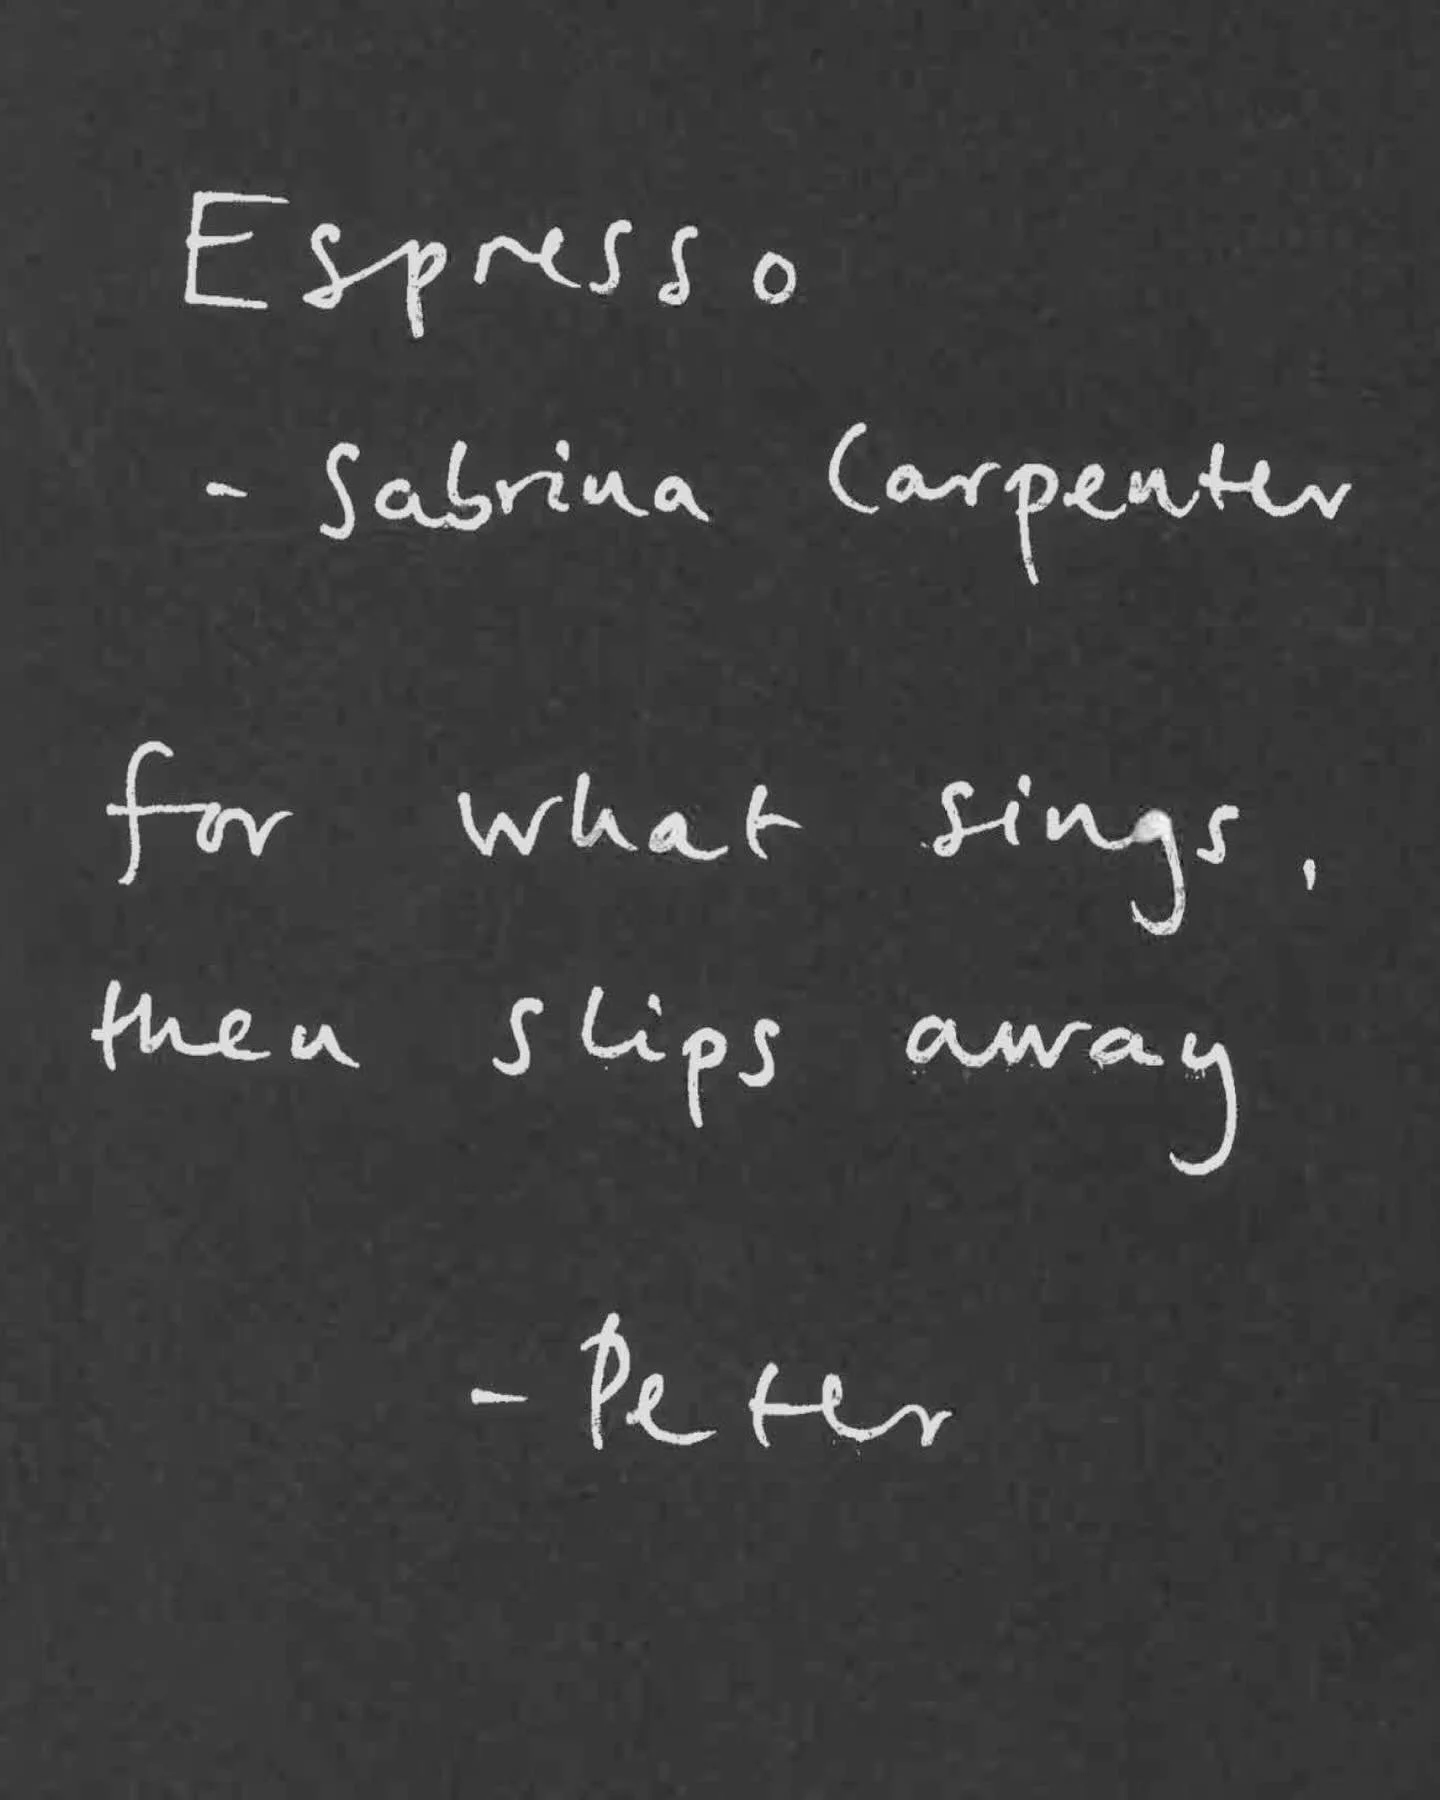 Espresso
- Sabrina Carpenter
for what sings,
then slips away
- Peter